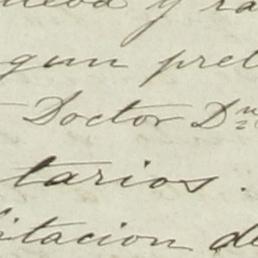 nueva y ra
gun pret
Doctor Dn
tarios.
itacion de